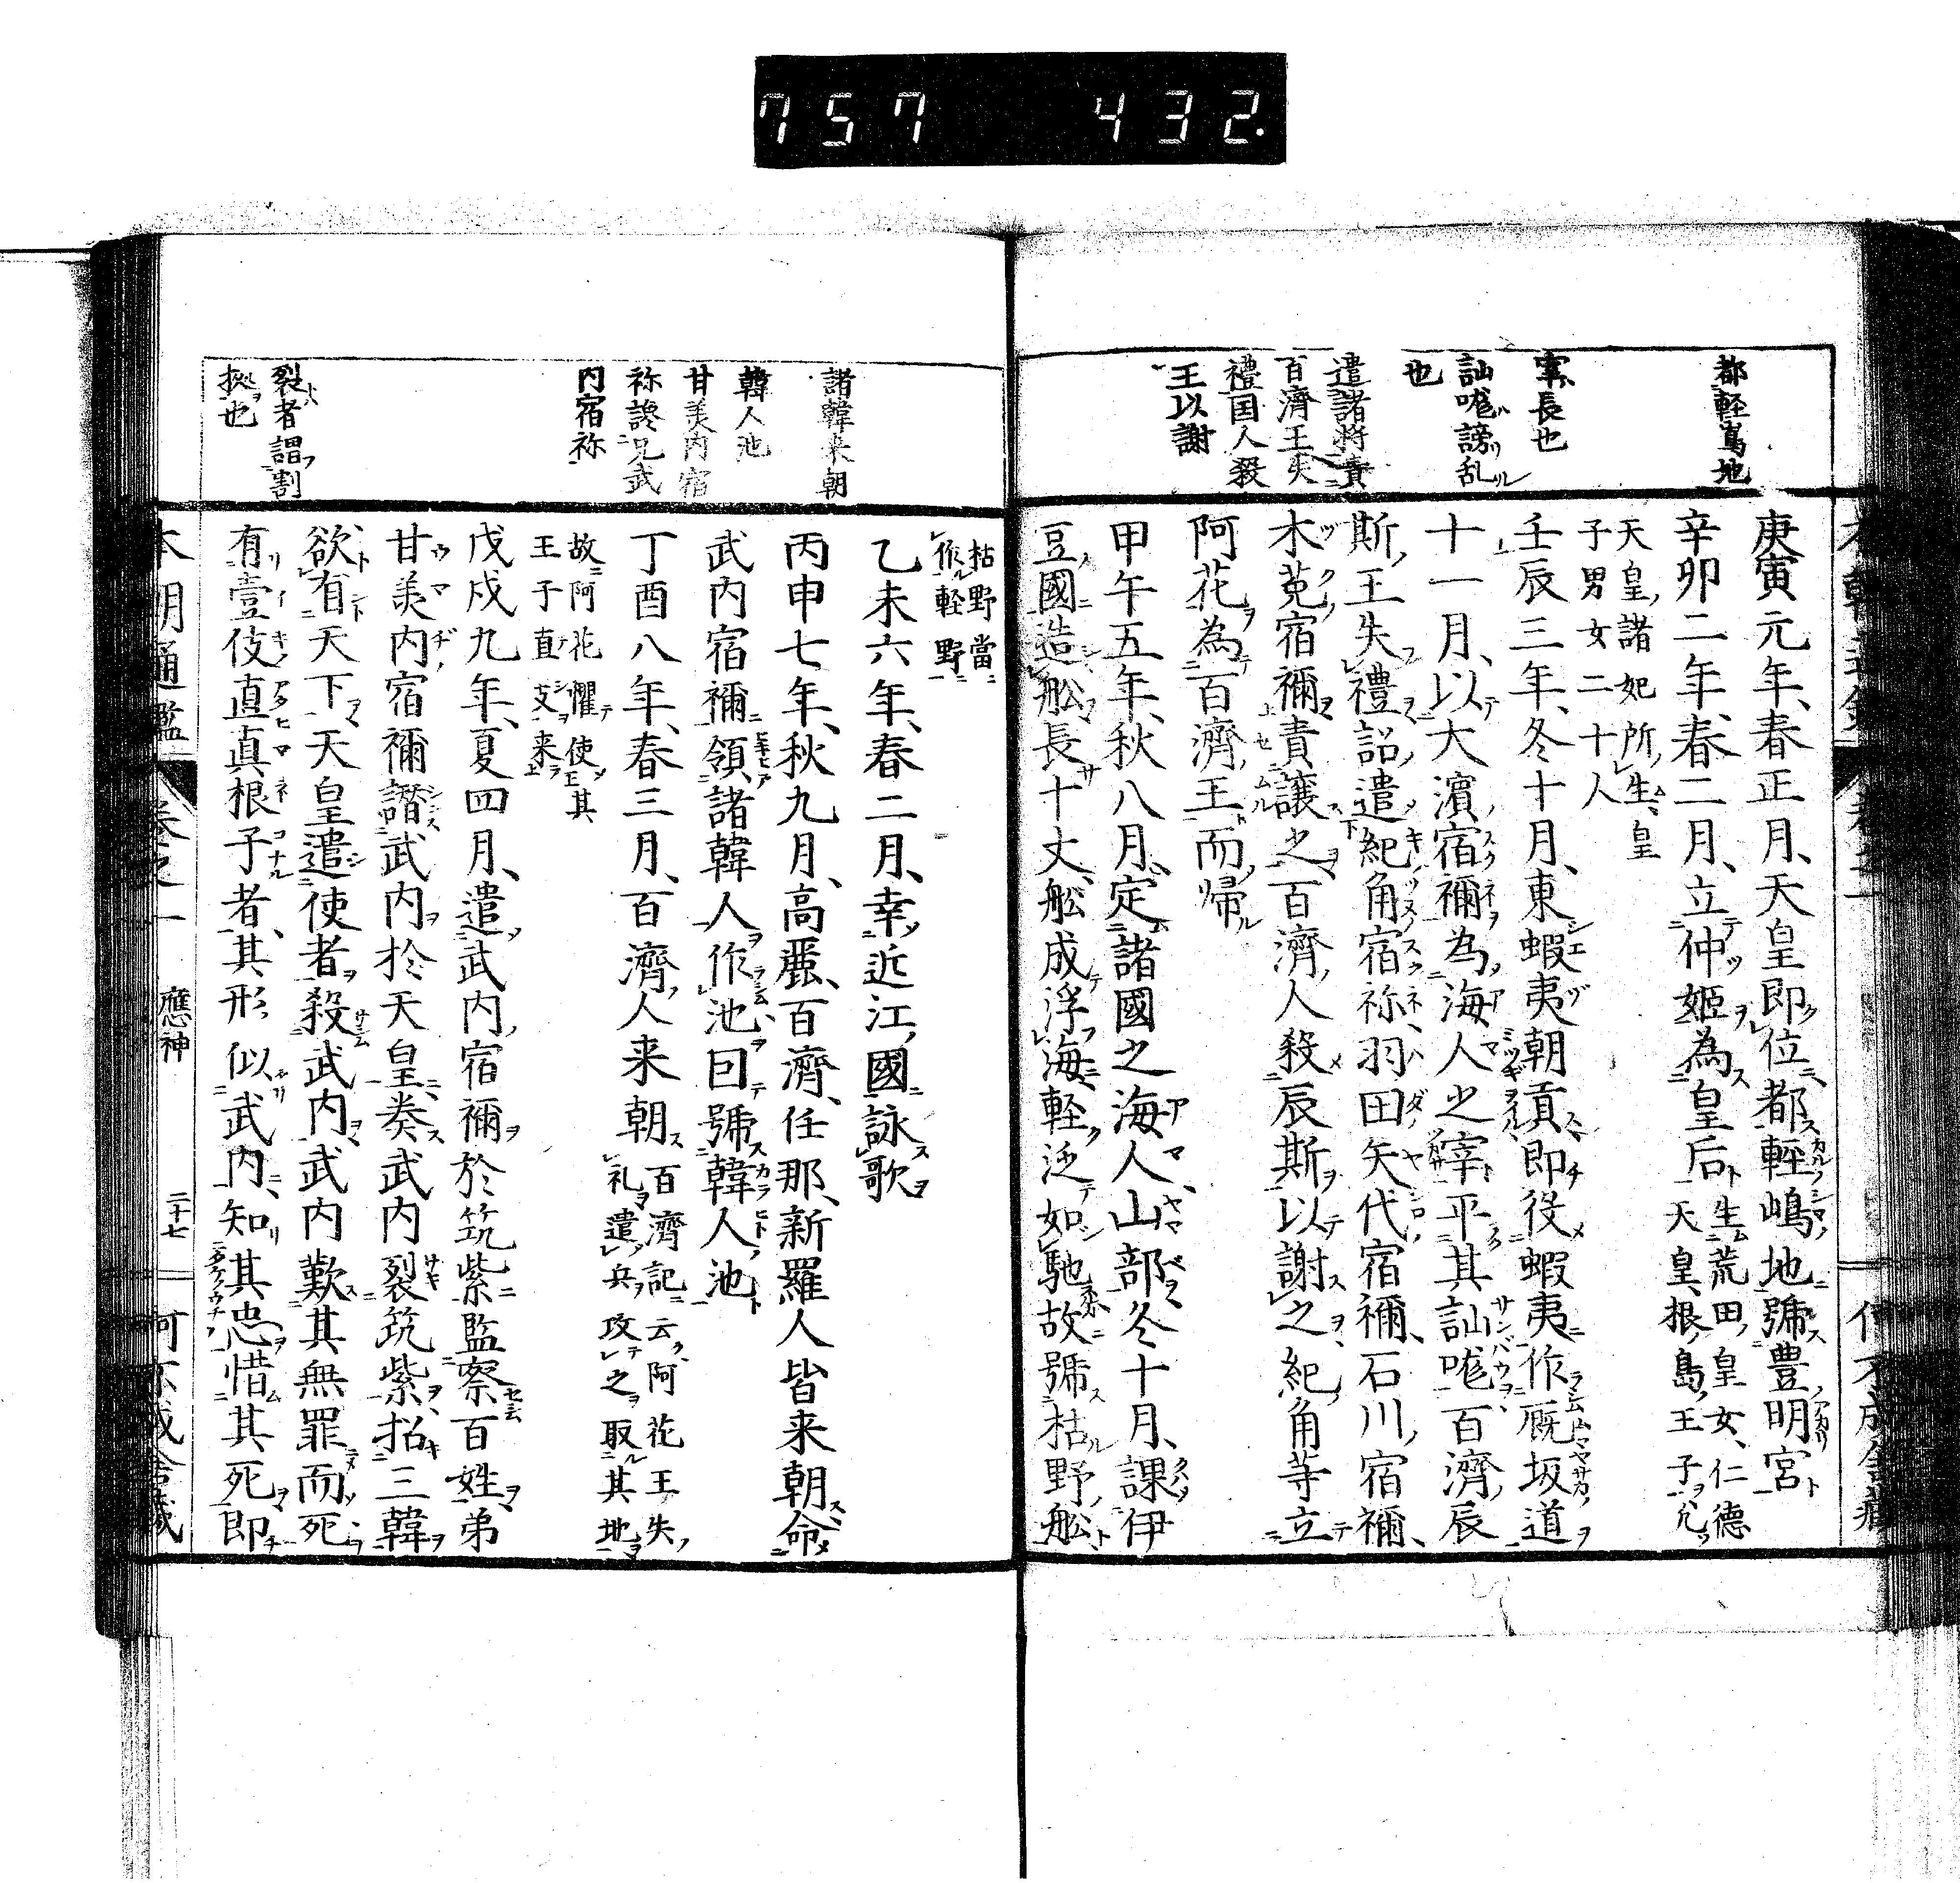 757 432.
都軽嶌地
宰長也
訕哤謗乱
也
遣諸将責
百濟王失
禮国人殺
王以謝
庚寅元年、春正月、天皇即位、都軽嶋地號豊明宮
辛卯二年、春二月、立仲姫為皇后
生荒田皇女、仁德
天皇、根島王子、凡
天皇諸妃所生、皇
子男女二十人
壬辰三年、冬十月、東蝦夷朝貢、即役蝦夷作厩坂道
十一月、以大濱宿禰為海人之宰、平其訕哤、百濟辰
斯王失禮、詔遣紀角宿祢、羽田矢代宿禰、石川宿禰、
木菟宿禰責譲之、百濟人殺辰斯以謝之、紀角等立
阿花為百濟王而帰
甲午五年、秋八月、定諸國之海人、山部、冬十月、課伊
豆國造舩、長十丈、舩成浮海、軽泛如馳、故號枯野舩
枯野當
作軽野
乙未六年、春二月、幸近江國詠歌
丙申七年、秋九月、高麗、百濟、任那、新羅人皆来朝、命
武内宿禰領諸韓人作池、曰號韓人池
丁酉八年、春三月、百濟人来朝
百濟記云、阿花王失
礼、遣兵攻之取其地
故阿花懼使其
王子直支来
戊戌九年、夏四月、遣武内宿禰於筑紫監察百姓、弟
甘美内宿禰譖武内於天皇、奏武内裂筑紫、招三韓
欲有天下、天皇遣使者殺武内、武内歎其無罪而死
有壹伎直真根子者、其形似武内、知其忠惜其死、即
諸韓来朝
韓人池
甘美内宿
祢讒兄武
内宿祢
裂者謂割
據也
本朝通鑑 卷之一 應神 二十七